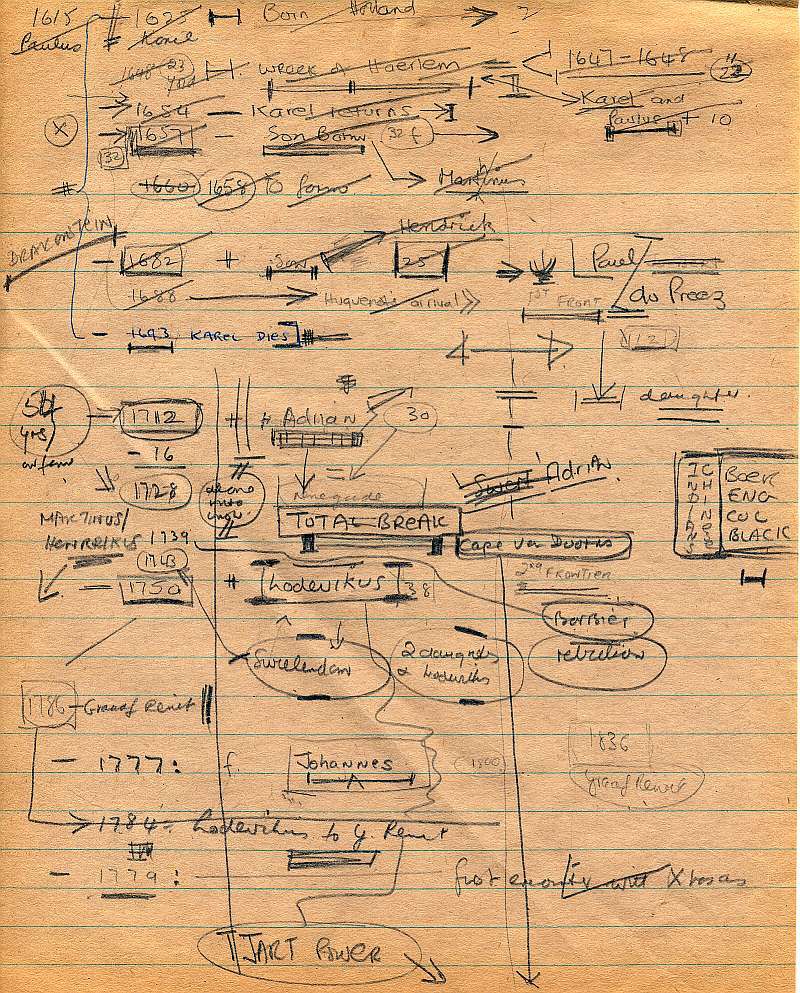 1615 # 1625 Born Holland → ?
Paulus # Karel
1648 23 Wreck of Haerlem 1647-1648
1654 - Karel returns Karel and
Paulus + 10
X 1657 - Son Born 32
132
+660 1658 to farm Martinus
DRAKENSTEIN Hendrick
- 1682 + Son 25 Paul
1688 → Huguenots arrival 1st FRONT du Preez
- 1693 KAREL DIES 12
daughter
54 yrs 1712 + # Adrian 30
- 16
1728 alone into Renegade Adrian
TOTAL BREAK
MARTINUS/ Cape Van
HENDRIKUS 1739
BOER
ENG
COL
BLACK
- 1750 # Lodevikus 38 2nd FRONTIER
Barbier
Swellendam 2 daughters & Lodevikus rebellion
1786 - Graaf Reinet
- 1777: f. Johannes 1800 1836
Graaf Reinet
→ 1784 - Lodevikus to G. Reinet
- 1779: first with Xhosas
JART POWER